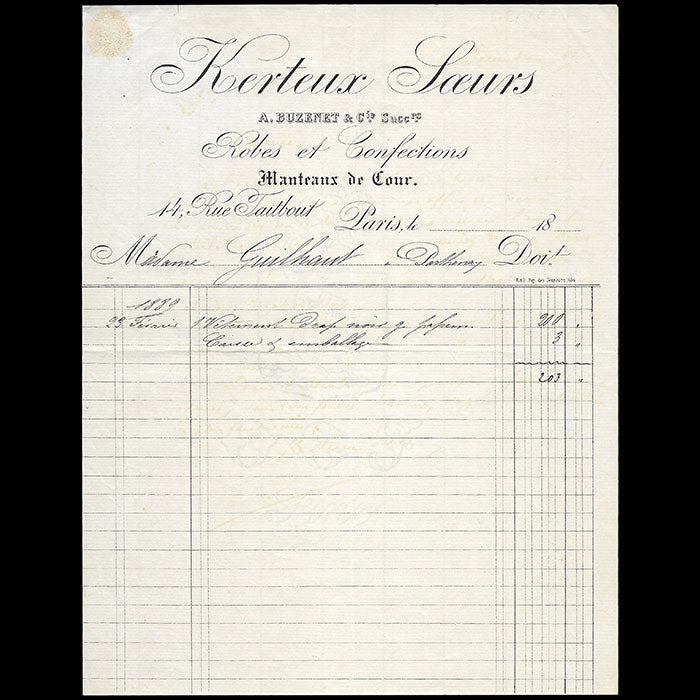 Kerteux Sœurs
A. BUZENET & Cie Succrs
Robes et Confections
Manteaux de Cour.
14, Rue Taitbout
Paris, le 18
Madame Guilhaut à Parthenay Doit
1889
23 Février 1 Vêtement drap noir 200 "
Caisse & emballage 3 "
203 "